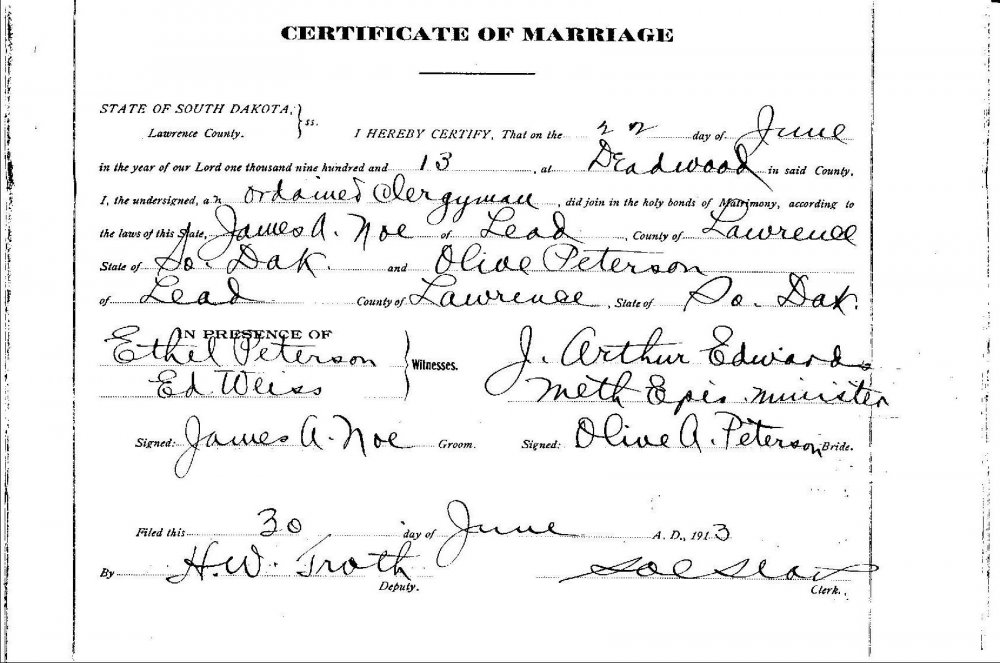 CERTIFICATE OF MARRIAGE
STATE OF SOUTH DAKOTA,
Lawrence County. } ss. I HEREBY CERTIFY, That on the 22 day of June
in the year of our Lord one thousand nine hundred and 13, at Deadwood in said County,
I, the undersigned, an ordained Clergyman, did join in the holy bonds of Matrimony, according to
the laws of this State, James A. Noe of Lead, County of Lawrence
State of So. Dak. and Olive Peterson
of Lead County of Lawrence, State of So. Dak.
IN PRESENCE OF
Ethel Peterson } Witnesses. J. Arthur Edwards
Ed Weiss Meth Epis. minister
Signed: James A. Noe Groom. Signed: Olive A. Peterson Bride.
Filed this 30 day of June A. D., 1913
By H. W. Troth
Deputy. Clerk.